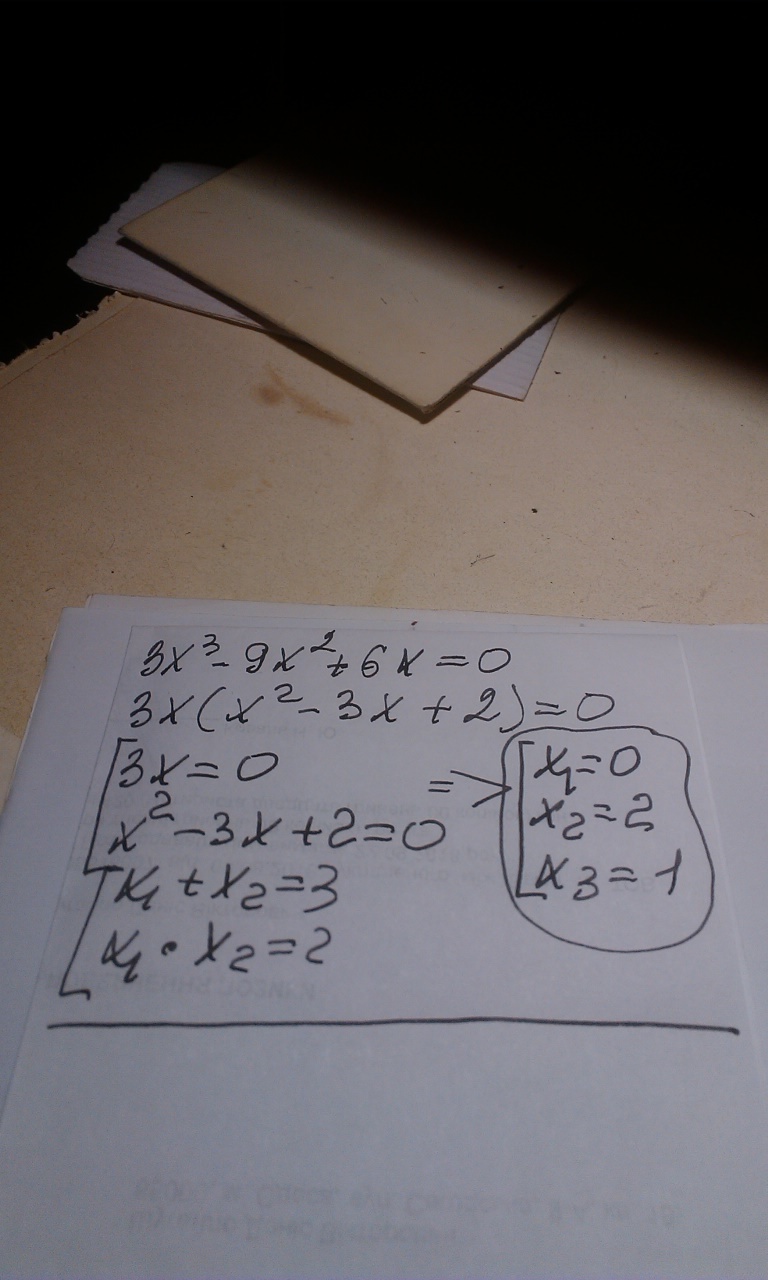 3x³ - 9x² + 6x = 0
3x(x² - 3x + 2) = 0
[3x = 0
x² - 3x + 2 = 0
[x₁ + x₂ = 3
x₁ • x₂ = 2
=>
[x₁ = 0
x₂ = 2
x₃ = 1